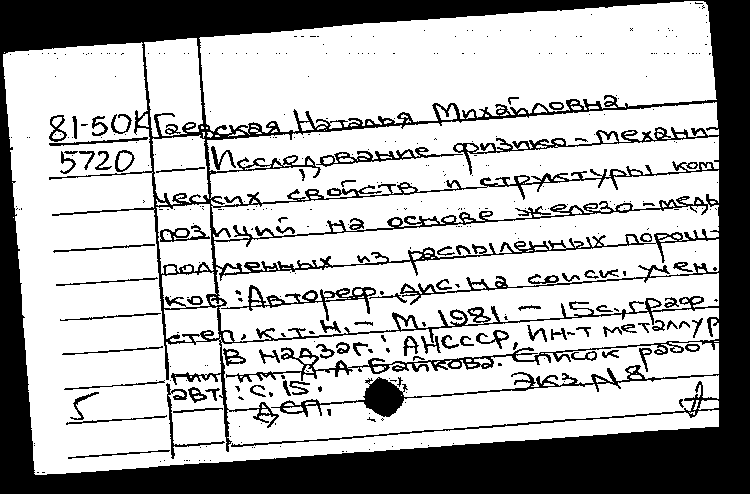 81-50К Гаевская, Наталья Михайловна.
5720 Исследование физико-механи-
ческих свойств и структуры ком-
позиций на основе железо-медь
полученных из распыленных порош-
ков: Автореф. дис. на соиск. учен.
степ. к.т.н. - М., 1981. - 15с., граф.
В надзаг.: АНСССР, ИН-Т металлур
гии им. А.А. Байкова. Список работ
авт.: с. 15. Экз. N 8.
5 ДСП.